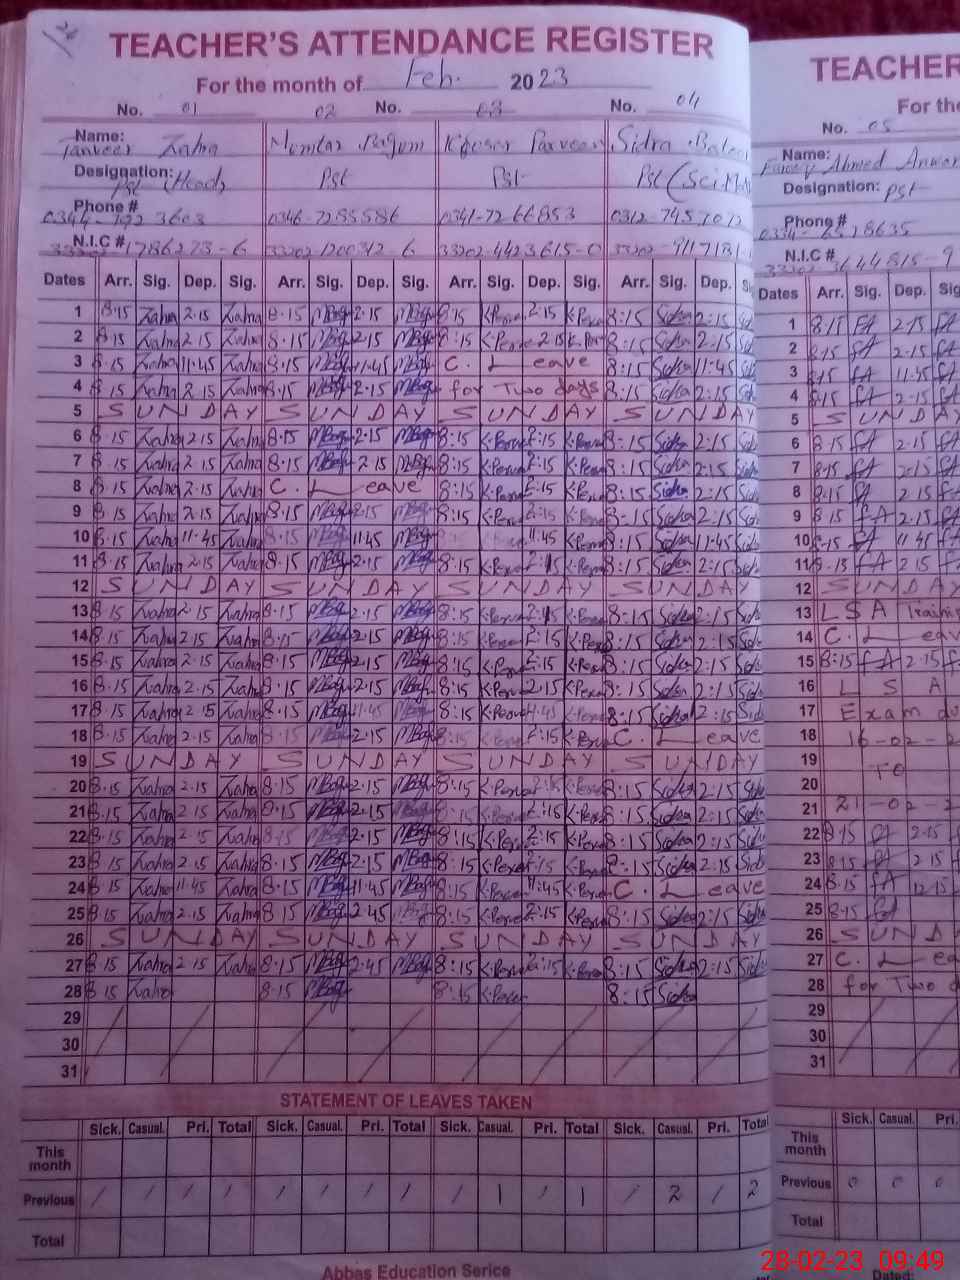 TEACHER'S ATTENDANCE REGISTER
For the month of Feb. 2023
No. 01 02 No. 03 No. 04
Name: Tanveer Zahra Mumtaz Begum Kousar Parveen Sidra
Designation: Pst (Head) Pst Pst Pst (Sci
Phone # 0344 3603 0346-7285586 0341-7266853 0312-7457012
N.I.C # 33202-1786273-6 33202-1200312-6 33202-4423615-0 33202-
Dates Arr. Sig. Dep. Sig. Arr. Sig. Dep. Sig. Arr. Sig. Dep. Sig. Arr. Sig. Dep.
1 8.15 Zahra 2.15 Zahra 8.15 MBeg 2.15 MBeg 8:15 K.Perve 2:15 K.Perve 8:15 Sidra 2:15
2 8.15 Zahra 2.15 Zahra 8.15 MBeg 2.15 MBeg 8:15 K.Perve 2.15 K.Per 8:15 Sidra 2:15
3 8.15 Zahra 11.45 Zahra 8.15 MBeg 11.45 MBeg C. Leave 8:15 Sidra 11:45
4 8.15 Zahra 2.15 Zahra 8.15 MBeg 2.15 MBeg for Two days 8:15 Sidra 2:15
5 SUNDAY SUNDAY SUNDAY SUNDAY
6 8.15 Zahra 2.15 Zahra 8.15 MBeg 2.15 MBeg 8:15 K.Perve 2:15 K.Perve 8:15 Sidra 2:15
7 8.15 Zahra 2.15 Zahra 8.15 MBeg 2.15 MBeg 8:15 K.Perve 2:15 K.Perve 8:15 Sidra 2:15
8 8.15 Zahra 2.15 Zahra C. Leave 8:15 K.Perve 2:15 K.Perve 8:15 Sidra 2:15
9 8.15 Zahra 2.15 Zahra 8.15 MBeg MBeg 8:15 K.Perve 2:15 K.Perve 8:15 Sidra 2:15
10 8.15 Zahra 11.45 Zahra 8.15 MBeg 11.45 MBeg 11:45 K.Perve 8:15 Sidra 11:45
11 8.15 Zahra 2.15 Zahra 8.15 MBeg 2.15 MBeg 8:15 K.Perve 2:15 K.Perve 8:15 Sidra 2:15
12 SUNDAY SUNDAY SUNDAY SUNDAY
13 8.15 Zahra 2.15 Zahra 8.15 MBeg 2.15 MBeg 8:15 K.Perve K.Perve 8:15 Sidra 2:15
14 8.15 Zahra 2.15 Zahra 8.15 MBeg 2.15 MBeg 8:15 K.Perve 2:15 K.Perve 8:15 Sidra 2:15
15 8.15 Zahra 2.15 Zahra 8.15 MBeg 2.15 MBeg 8:15 K.Perve 2:15 K.Perve 8:15 Sidra 2:15
16 8.15 Zahra 2.15 Zahra 8.15 MBeg 2.15 MBeg 8:15 K.Perve 2.15 K.Perve 8:15 Sidra 2:15
17 8.15 Zahra 2.15 Zahra 8.15 MBeg 11.45 MBeg 8:15 K.Perve 11:45 K.Perve 8:15 Sidra 2:15
18 8.15 Zahra 2.15 Zahra 8.15 MBeg 2.15 MBeg 8:15 K.Perve 2:15 K.Perve C. Leave
19 SUNDAY SUNDAY SUNDAY SUNDAY
20 8.15 Zahra 2.15 Zahra 8.15 MBeg 2.15 MBeg 8:15 K.Perve 2:15 K.Perve 8:15 Sidra 2:15
21 8.15 Zahra 2.15 Zahra 8.15 MBeg 2.15 MBeg 8:15 K.Perve 2:15 K.Perve 8:15 Sidra 2:15
22 8.15 Zahra 2.15 Zahra 8.15 MBeg 2.15 MBeg 8:15 K.Perve 2:15 K.Perve 8:15 Sidra 2:15
23 8.15 Zahra 2.15 Zahra 8.15 MBeg 2.15 MBeg 8:15 K.Perve K.Perve 8:15 Sidra 2:15
24 8.15 Zahra 11.45 Zahra 8.15 MBeg 11.45 MBeg 8:15 K.Perve 11:45 K.Perve C. Leave
25 8.15 Zahra 2.15 Zahra 8.15 MBeg 2.45 MBeg 8:15 K.Perve 2:15 K.Perve 8:15 Sidra 2:15
26 SUNDAY SUNDAY SUNDAY SUNDAY
27 8.15 Zahra 2.15 Zahra 8.15 MBeg 2.45 MBeg 8:15 K.Perve 2:15 K.Perve 8:15 Sidra 2:15
28 8.15 Zahra 8.15 MBeg 8:15 K.Perve 8:15 Sidra
29
30
31
STATEMENT OF LEAVES TAKEN
Sick. Casual. Pri. Total Sick. Casual. Pri. Total Sick. Casual. Pri. Total Sick. Casual. Pri. Total
This month
Previous / / / / / / / / / 1 / 1 / 2 / 2
Total
Abbas Education Serice
TEACHER
For the
No. 05
Name: Ahmed
Designation: Pst
Phone # 8635
N.I.C # 33202-3644815-9
Dates Arr. Sig. Dep.
1 8.15 FA 2.15 FA
2 8.15 FA 2.15 FA
3 8.15 FA 11.45 FA
4 8.15 FA 2.15 FA
5 SUNDAY
6 8.15 FA 2.15 FA
7 8.15 FA 2.15 FA
8 8.15 FA 2.15 FA
9 8.15 FA 2.15 FA
10 8.15 FA 11.45 FA
11 8.15 FA 2.15 FA
12 SUNDAY
13 LSA
14 C.
15 8:15 FA 2.15
16 L S A
17 Exam
18 16-02-2
19 TO
20
21 21-02-2
22 8.15 FA 2.15
23 8.15 FA 2.15
24 8.15 FA 12.15
25 8.15 FA
26 SUND
27 C.
28 for Two
29
30
31
Sick. Casual. Pri
This month
Previous 0 0 0
Total
28-02-23 09:49